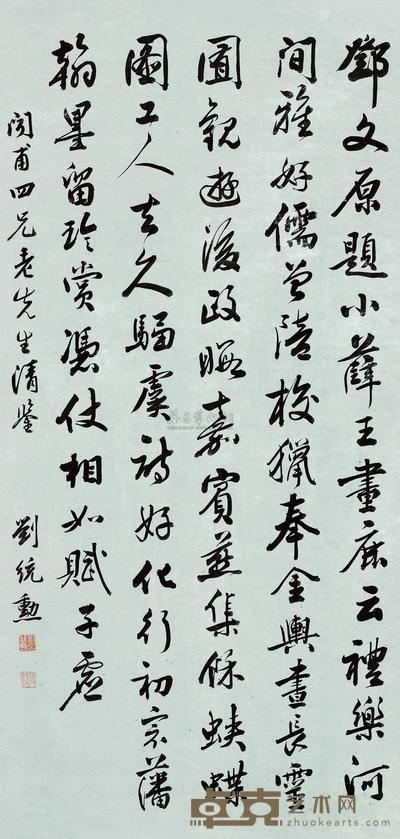 鄧文原題小薛王畫鹿云禮樂河
間雅好儒曾陪校獵奉金輿晝長靈
囿觀遊後政暇嘉賓燕集餘蛺蝶
圖工人去久騶虞詩好化行初宗藩
翰墨留珍賞憑仗相如賦子虛
甫四兄老先生清鑒
劉統勳
卓克艺术网
zhuokearts.com